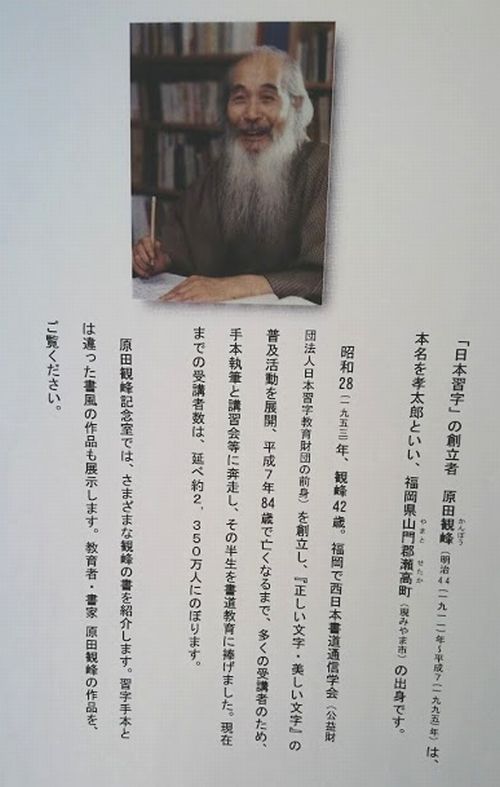 「日本習字」の創立者　原田観峰（明治44（一九一一）年～平成7（一九九五）年）は、
かんぽう
本名を孝太郎といい、福岡県山門郡瀬高町（現みやま市）の出身です。
やまと　せたか
昭和28（一九五三）年、観峰42歳。福岡で西日本書道通信学会（公益財
団法人日本習字教育財団の前身）を創立し、『正しい文字・美しい文字』の
普及活動を展開、平成7年84歳で亡くなるまで、多くの受講者のため、
手本執筆と講習会等に奔走し、その半生を書道教育に捧げました。現在
までの受講者数は、延べ約2，350万人にのぼります。
原田観峰記念室では、さまざまな観峰の書を紹介します。習字手本と
は違った書風の作品も展示します。教育者・書家 原田観峰の作品を、
ご覧ください。